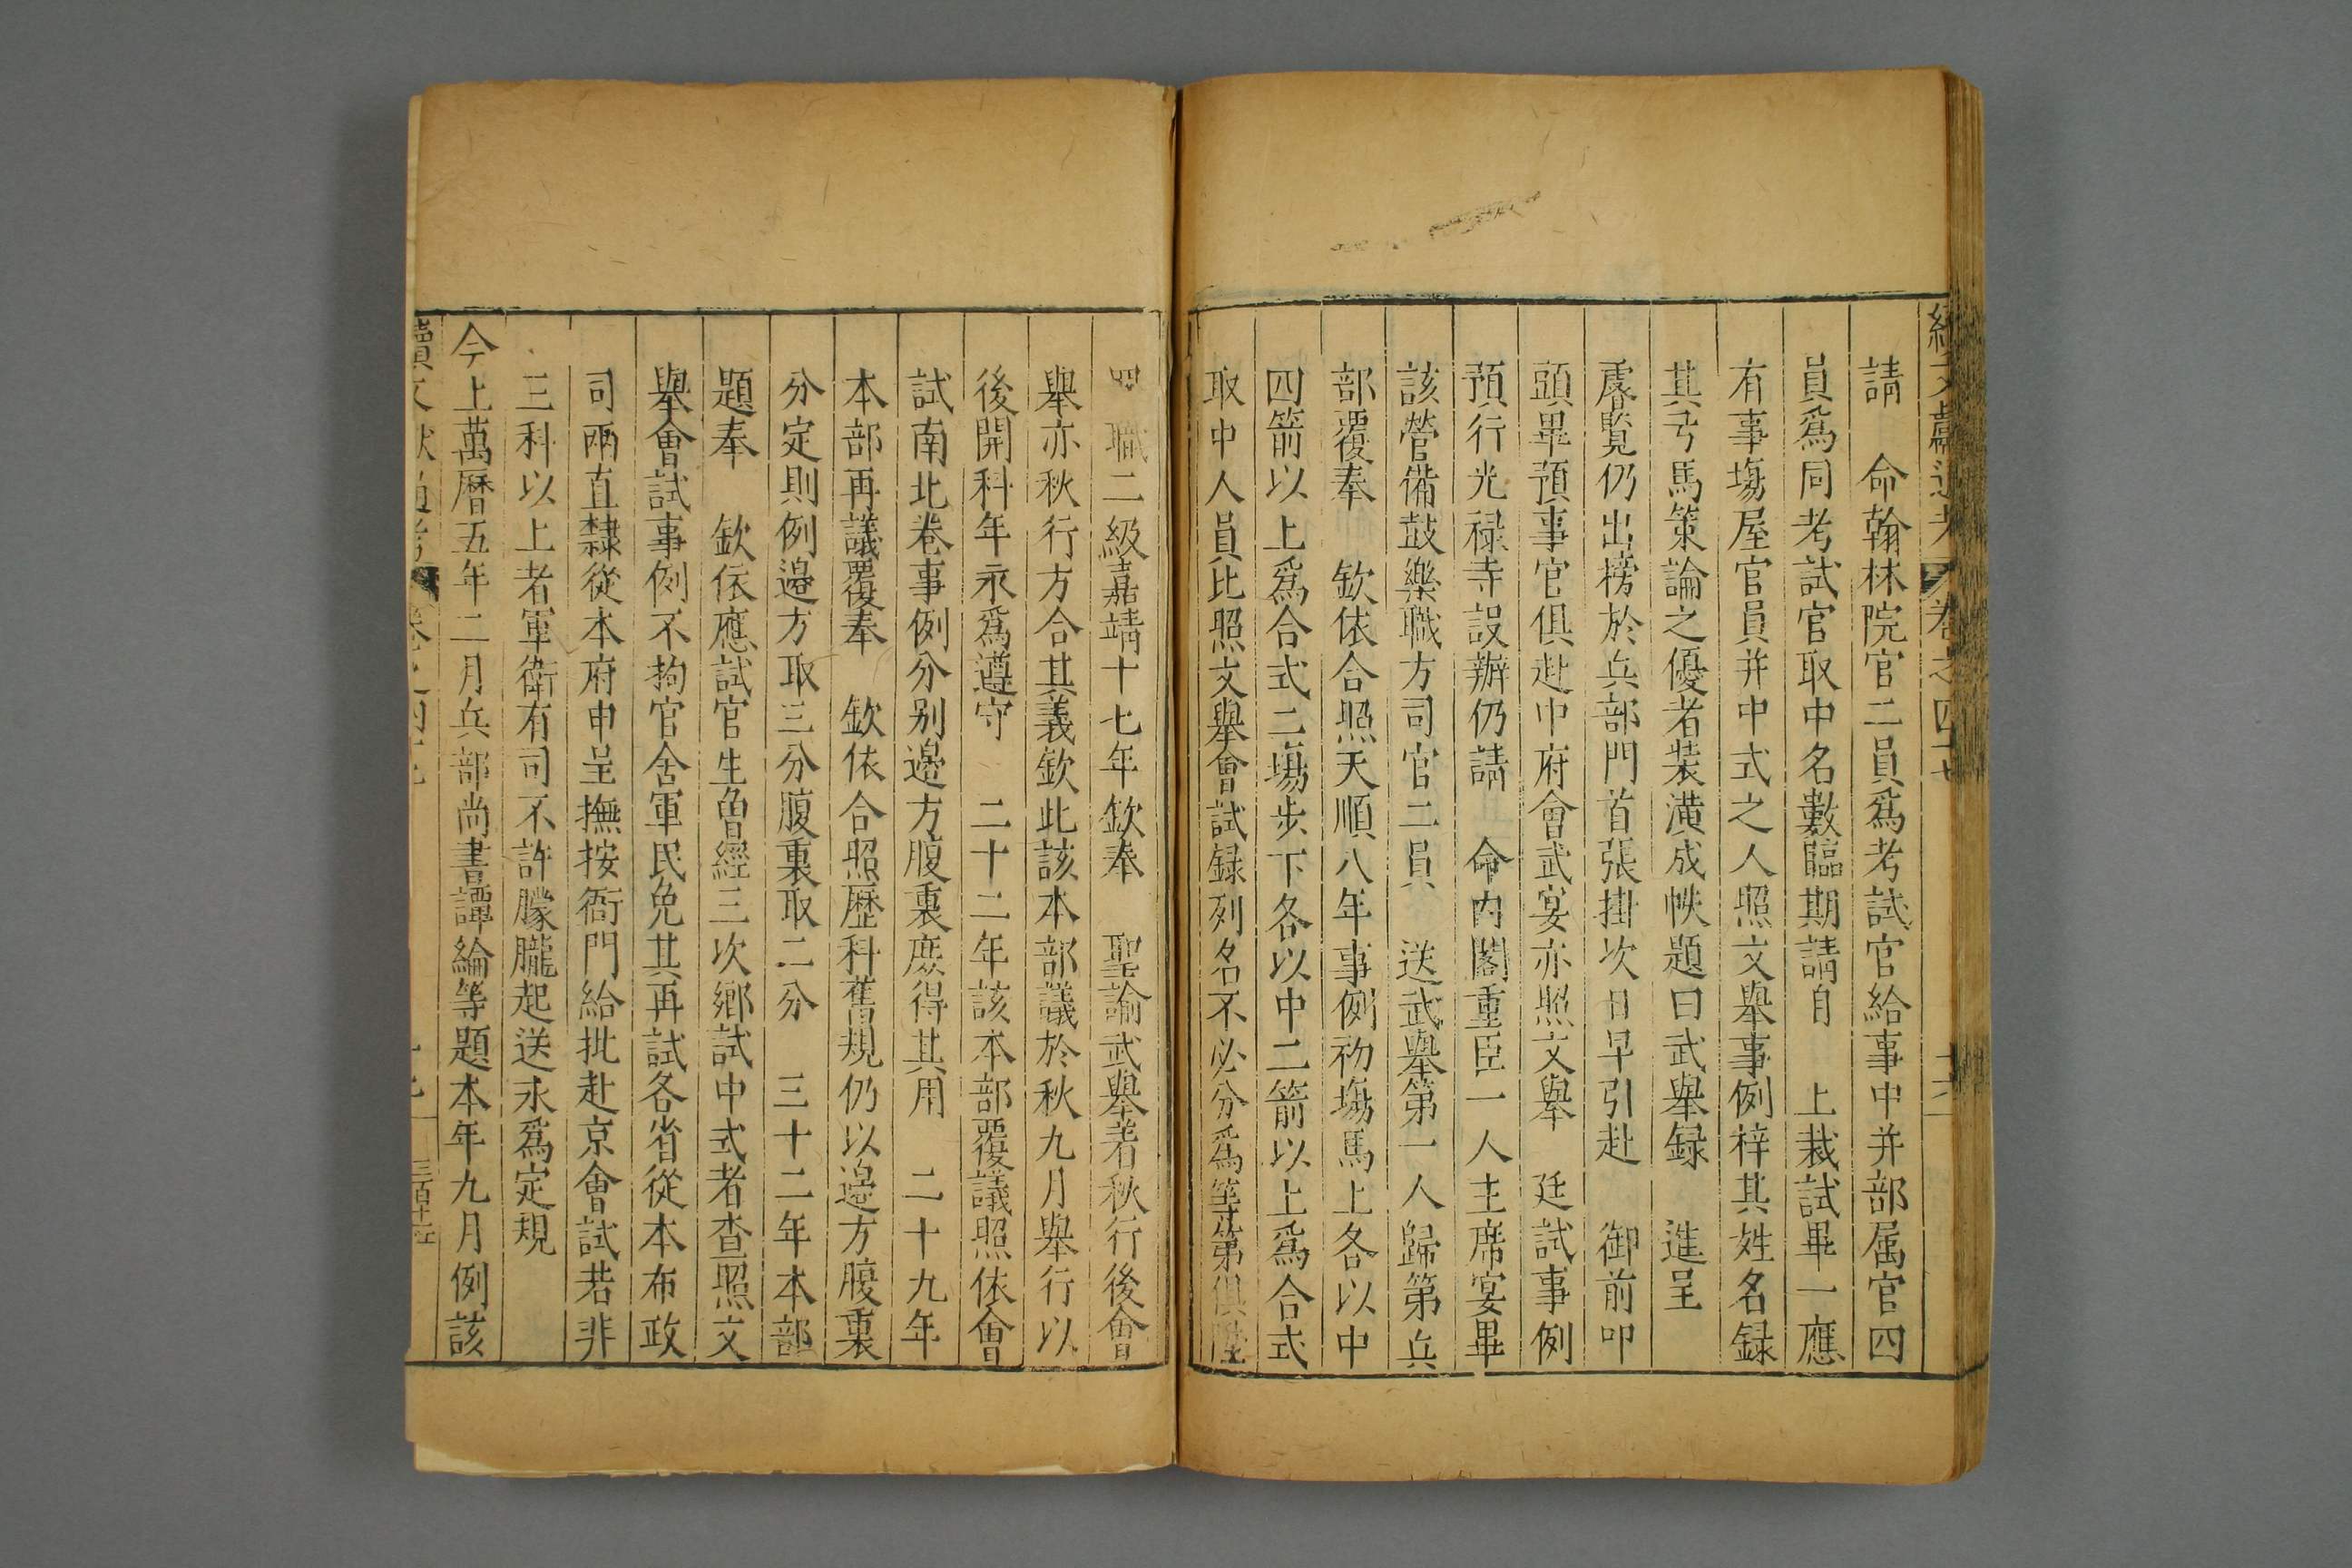 請　命翰林院官二員爲考試官給事中并部属官四
員爲同考試官取中名數臨期請自　上裁試畢一應
有事塲屋官員并中式之人照文舉事例梓其姓名録
其弓馬策論之優者装潢成帙題曰武舉録　進呈
睿覧仍出榜於兵部門首張掛次日早引赴　御前叩
頭畢預事官俱赴中府會武宴亦照文舉　廷試事例
預行光禄寺設辦仍請　命内閣重臣一人主席宴畢
該營備鼓樂職方司官二員　送武舉第一人歸第兵
部覆奉　欽依合照天順八年事例初塲馬上各以中
四箭以上爲合式二塲步下各以中二箭以上爲合式
取中人員比照文舉會試録列名不必分爲等第俱陞
職二級嘉靖十七年欽奉　聖諭武舉著秋行後會
舉亦秋行方合其義欽此該本部議於秋九月舉行以
後開科年永爲遵守　二十二年該本部覆議照依會
試南北卷事例分别邊方腹裏庶得其用　二十九年
本部再議覆奉　欽依合照歷科舊規仍以邊方腹裏
分定則例邊方取三分腹裏取二分　三十二年本部
題奉　欽依應試官生曾經三次鄉試中式者查照文
舉會試事例不拘官舍軍民免其再試各省從本布政
司兩直隸從本府申呈撫按衙門給批赴京會試若非
三科以上者軍衛有司不許朦朧起送永爲定規
今上萬曆五年二月兵部尚書譚綸等題本年九月例該